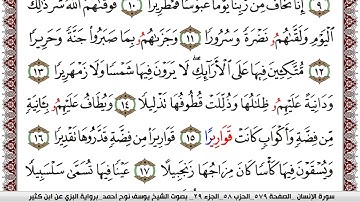 ٩ إِنَّا نَخَافُ مِن رَّبِّنَا يَوْمًا عَبُوسًا قَمْطَرِيرًا ١٠ فَوَقَىٰهُمُ ٱللَّهُ شَرَّ ذَٰلِكَ
ٱلْيَوْمِ وَلَقَّىٰهُمُۥ نَضْرَةً وَسُرُورًا ١١ وَجَزَىٰهُمُۥ بِمَا صَبَرُوا۟ جَنَّةً وَحَرِيرًا
١٢ مُّتَّكِـِٔينَ فِيهَا عَلَى ٱلْأَرَآئِكِ ۖ لَا يَرَوْنَ فِيهَا شَمْسًا وَلَا زَمْهَرِيرًا ١٣
وَدَانِيَةً عَلَيْهِمُۥ ظِلَٰلُهَا وَذُلِّلَتْ قُطُوفُهَا تَذْلِيلًا ١٤ وَيُطَافُ عَلَيْهِمُۥ بِـَٔانِيَةٍ
مِّن فِضَّةٍ وَأَكْوَابٍ كَانَتْ قَوَارِيرًا ١٥ مِن فِضَّةٍ قَدَّرُوهَا تَقْدِيرًا ١٦
وَيُسْقَوْنَ فِيهَا كَأْسًا كَانَ مِزَاجُهَا زَنجَبِيلًا ١٧ عَيْنًا فِيهَا تُسَمَّىٰ سَلْسَبِيلًا
سورة الإنسان_ الصفحة ٥٧٩_ الحزب ٥٨_ الجزء ٢٩_ بصوت الشيخ يوسف نوح أحمد_ برواية البزي عن ابن كثير